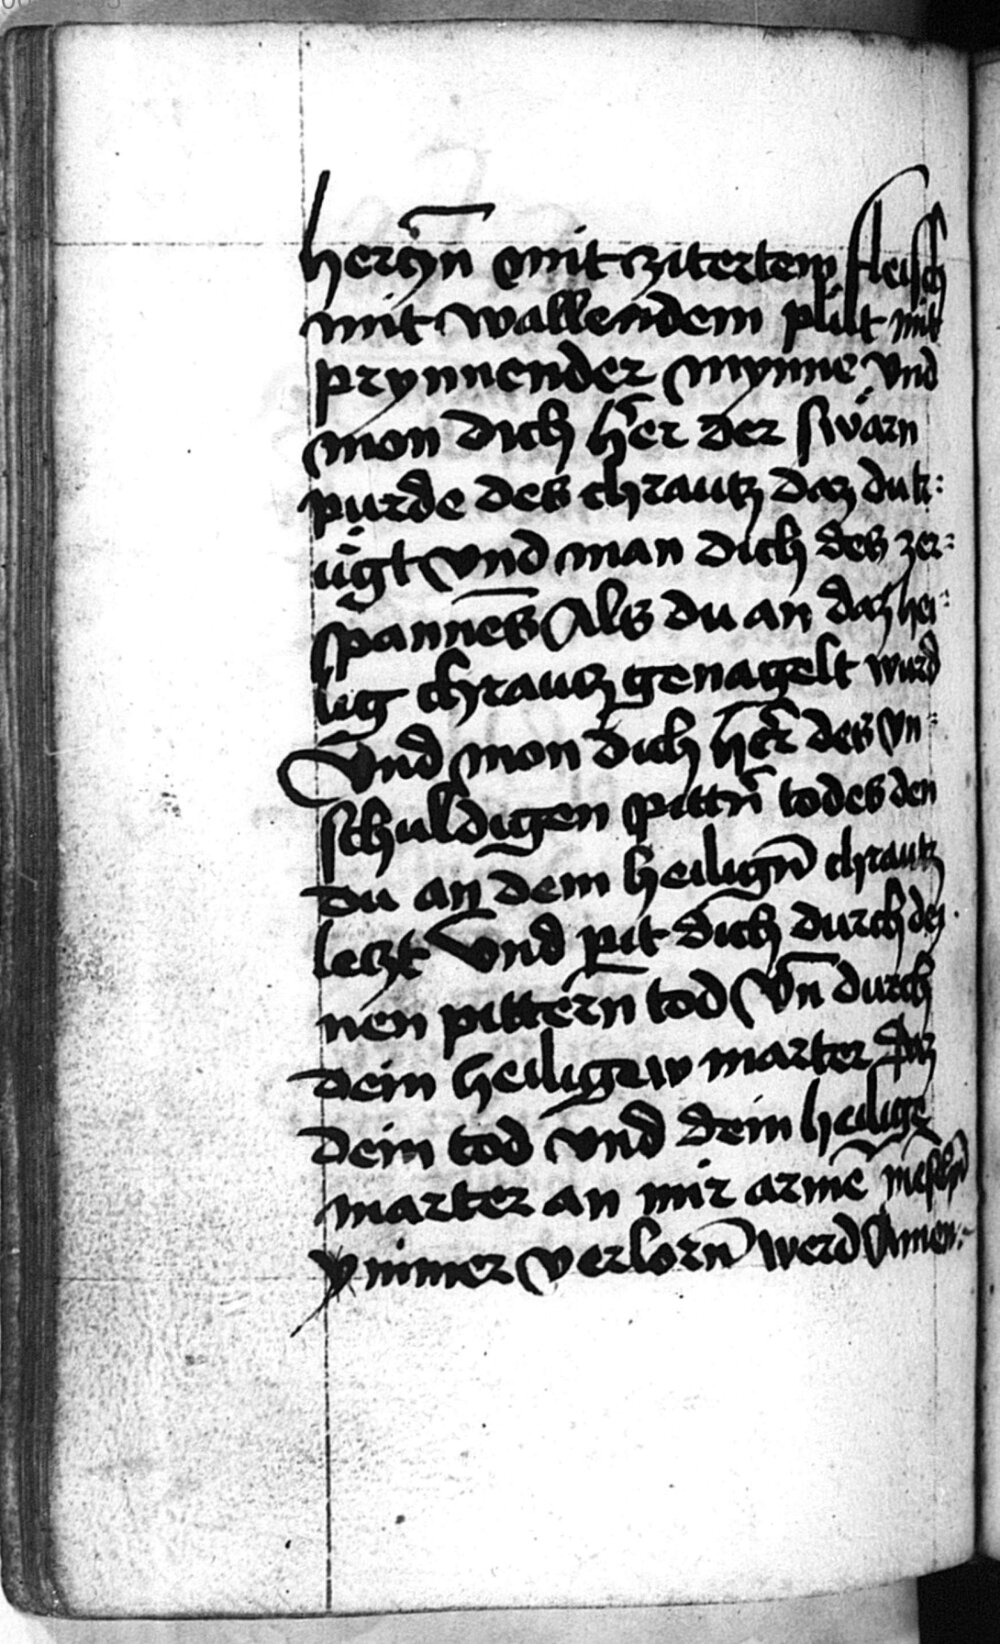 herczn̄ mit zitertem fleisch
mit wallendem plůt mit
prynnender mynne vnd
mon dich h̄er der swärn
purde des chrautz daz du tr:
ůgt vnd man dich des zer:
spannēs Als du an daz hei:
lig chrautz genagelt wurd
Vnd mon dich h̄er des vn:
schuldigen pittr̄n todes den
du an dem heilign̄ chrautz
letzt Vnd pit dich durch dei
nen pittern̄ tod Vn̄ durch
dein heiligew marter Daz
dein tod vnd dein heilige
marter an mir armē mēschn̄
ymmer verlorn̄ werd Amen:~